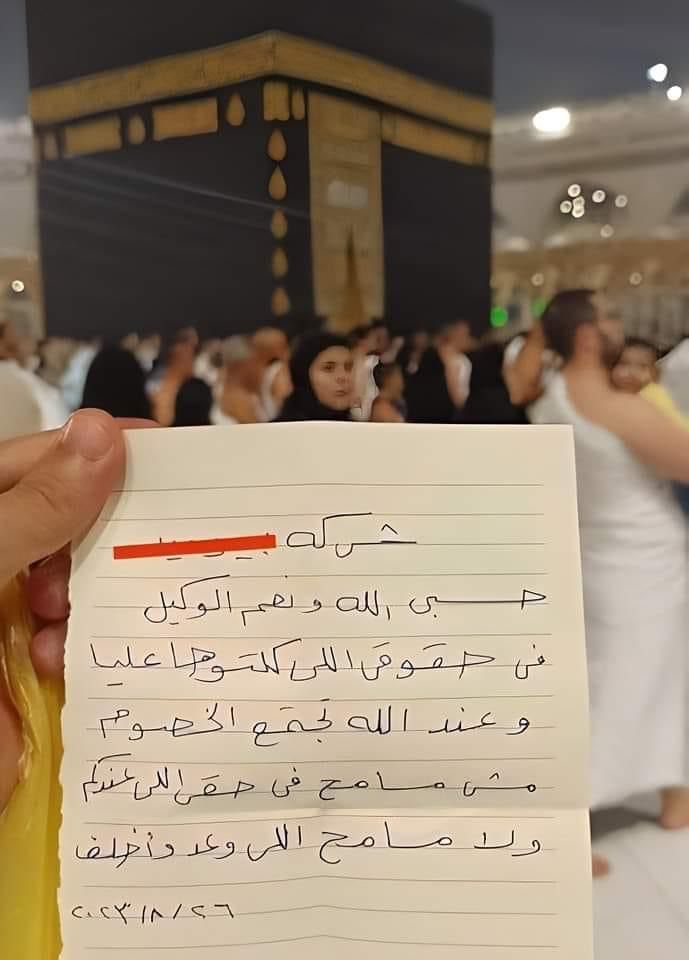 شركة
حسبي الله ونعم الوكيل
في حقوقي اللي كلتوها عليا
وعند الله تجتمع الخصوم
مش مسامح في حقي اللي عندكم
ولا مسامح اللي وعد وأخلف
٢٠٢٣/٨/٢٦